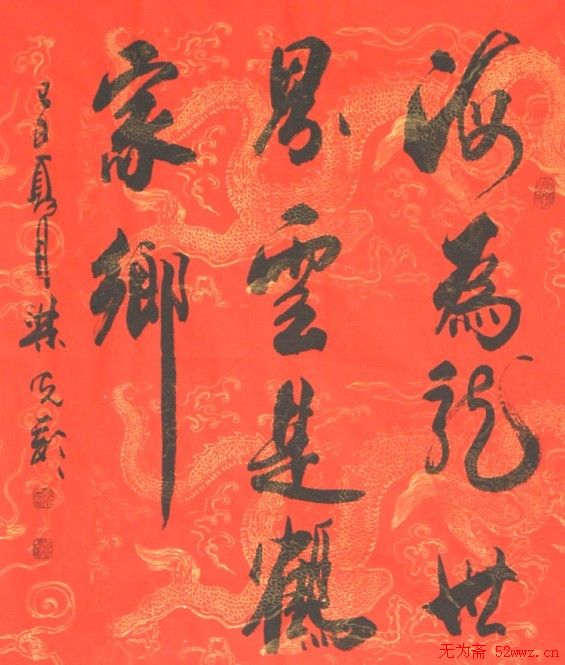 海為龍世
界雲是鶴
家鄉
己丑夏月
无为斋 52wwz.cn